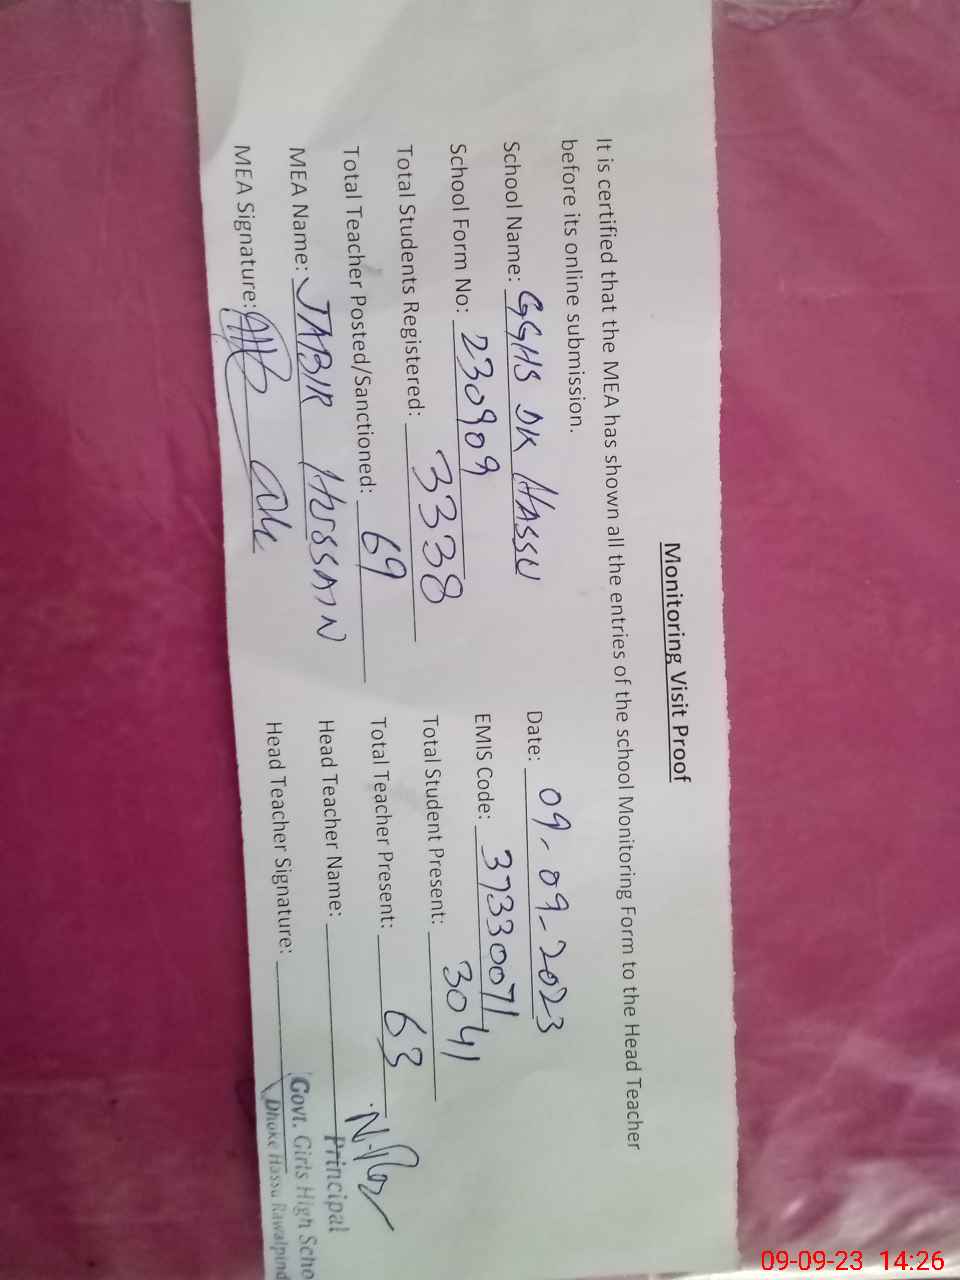 Monitoring Visit Proof
It is certified that the MEA has shown all the entries of the school Monitoring Form to the Head Teacher
before its online submission.
School Name: GGHS DK HASSU
Date: 09-09-2023
School Form No: 230909
EMIS Code: 37330071
Total Students Registered: 3338
Total Student Present: 3041
Total Teacher Posted/Sanctioned: 69
Total Teacher Present: 63
MEA Name: JABIR HUSSAIN
Head Teacher Name:
MEA Signature:
Head Teacher Signature:
Principal
Govt. Girls High Scho
Dhoke Hassu Rawalpind
09-09-23 14:26